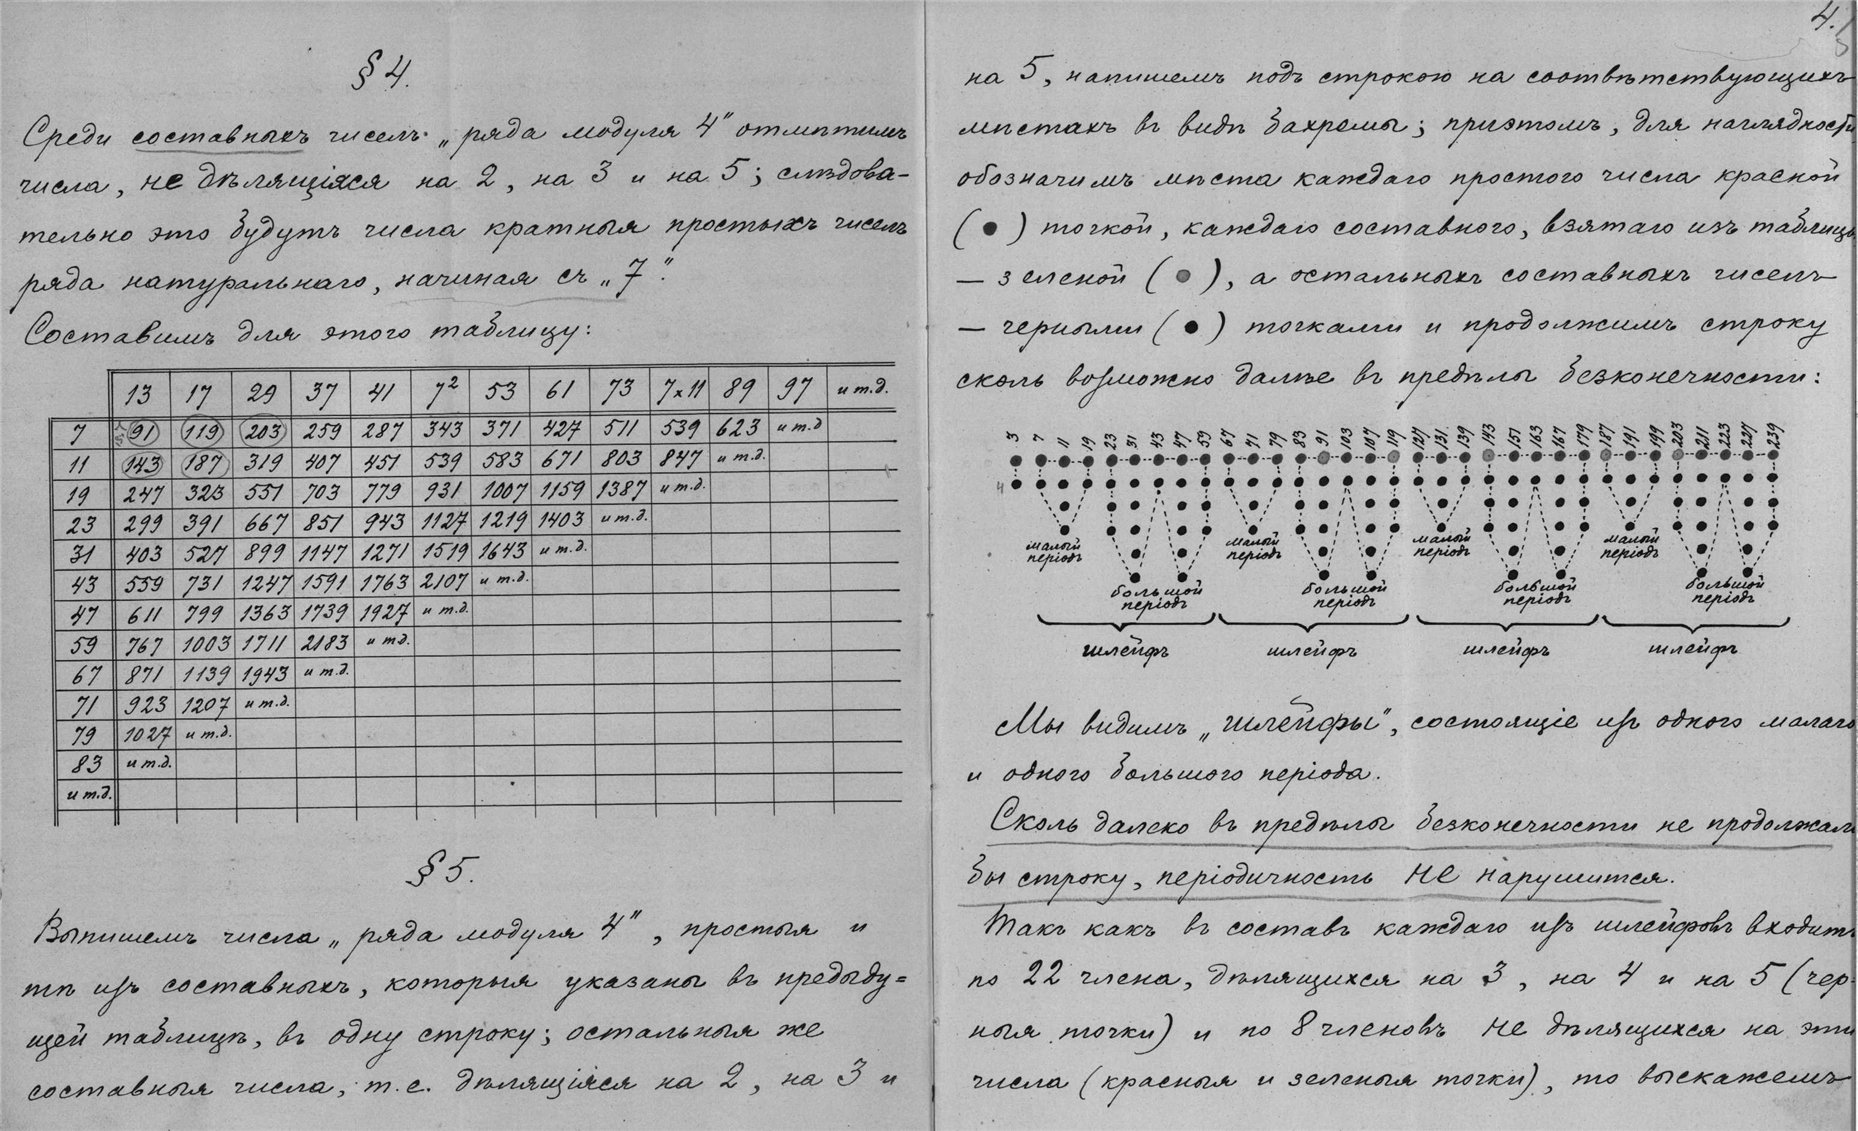 § 4.
Среди составныхъ чиселъ „ряда модуля 4" отмѣтимъ
числа, не дѣлящіяся на 2, на 3 и на 5; слѣдова-
тельно это будутъ числа кратныя простыхъ чиселъ
ряда натуральнаго, начиная съ „7".
Составимъ для этого таблицу:
13 17 29 37 41 7² 53 61 73 7×11 89 97 и т.д.
7 91 119 203 259 287 343 371 427 511 539 623 и т.д
11 143 187 319 407 451 539 583 671 803 847 и т.д.
19 247 323 551 703 779 931 1007 1159 1387 и т.д.
23 299 391 667 851 943 1127 1219 1403 и т.д.
31 403 527 899 1147 1271 1519 1643 и т.д.
43 559 731 1247 1591 1763 2107 и т.д.
47 611 799 1363 1739 1927 и т.д.
59 767 1003 1711 2183 и т.д.
67 871 1139 1943 и т.д.
71 923 1207 и т.д.
79 1027 и т.д.
83 и т.д.
и т.д.
§ 5.
Выпишемъ числа „ряда модуля 4", простыя и
тѣ изъ составныхъ, которыя указаны въ предыду=
щей таблицѣ, въ одну строку; остальныя же
составныя числа, т.е. дѣлящіяся на 2, на 3 и
4.
на 5, напишемъ подъ строкою на соотвѣтствующихъ
мѣстахъ въ видѣ бахромы; приэтомъ, для наглядности,
обозначимъ мѣста каждаго простого числа красной
(●) точкой, каждаго составного, взятаго изъ таблицы
— зеленой (●), а остальныхъ составныхъ чиселъ
— черными (●) точками и продолжимъ строку
сколь возможно далѣе въ предѣлы безконечности:
3 7 11 19 23 31 43 47 59 67 71 79 83 91 103 107 119 127 131 139 143 151 163 167 179 187 191 199 203 211 223 227 239
4
малый періодъ малый періодъ малый періодъ малый періодъ
большой періодъ большой періодъ большой періодъ большой періодъ
шлейфъ шлейфъ шлейфъ шлейфъ
Мы видимъ „шлейфы", состоящіе изъ одного малаго
и одного большого періода.
Сколь далеко въ предѣлы безконечности не продолжали
бы строку, періодичность не нарушится.
Такъ какъ въ составъ каждаго изъ шлейфовъ входитъ
по 22 члена, дѣлящихся на 3, на 4 и на 5 (чер-
ныя точки) и по 8 членовъ не дѣлящихся на эти
числа (красныя и зеленыя точки), то выскажемъ